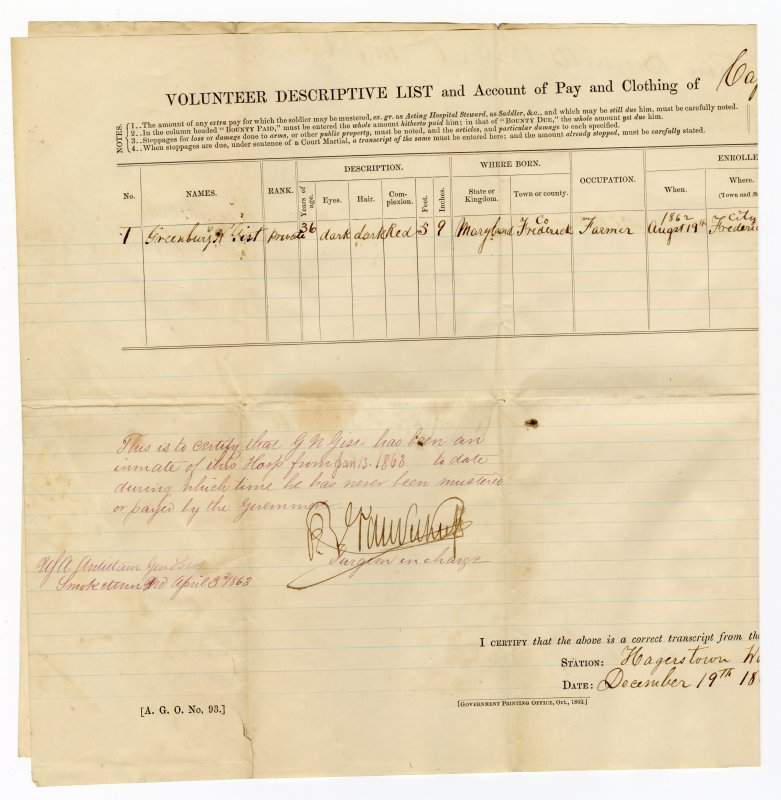 VOLUNTEER DESCRIPTIVE LIST and Account of Pay and Clothing of Cap
NOTES.
1..The amount of any extra pay for which the soldier may be mustered, ex. gr. as Acting Hospital Steward, as Saddler, &c., and which may be still due him, must be carefully noted.
2..In the column headed "BOUNTY PAID," must be entered the whole amount hitherto paid him; in that of "BOUNTY DUE," the whole amount yet due him.
3..Stoppages for loss or damage done to arms, or other public property, must be noted, and the articles, and particular damage to each specified.
4..When stoppages are due, under sentence of a Court Martial, a transcript of the same must be entered here; and the amount already stopped, must be carefully stated.
DESCRIPTION. WHERE BORN. ENROLLE
No. NAMES. RANK. Years of age. Eyes. Hair. Complexion. Feet. Inches. State or Kingdom. Town or county. OCCUPATION. When. Where. (Town and S
1 Greenbury Gist private 36 dark dark Red 5 9 Maryland Frederick Co Farmer 1862 August 19th Frederic City
This is to certify that G N Gist has been an
inmate of this Hosp from Jan 13. 1863 to date
during which time he has never been mustered
or payed by the Governm
Surgeon in charge
U S A Antietam Genl Hosp
Smoketown Md April 3d 1863
I CERTIFY that the above is a correct transcript from the
STATION: Hagerstown
DATE: December 19th 18
[A. G. O. No. 93.]
[GOVERNMENT PRINTING OFFICE, Oct., 1862.]